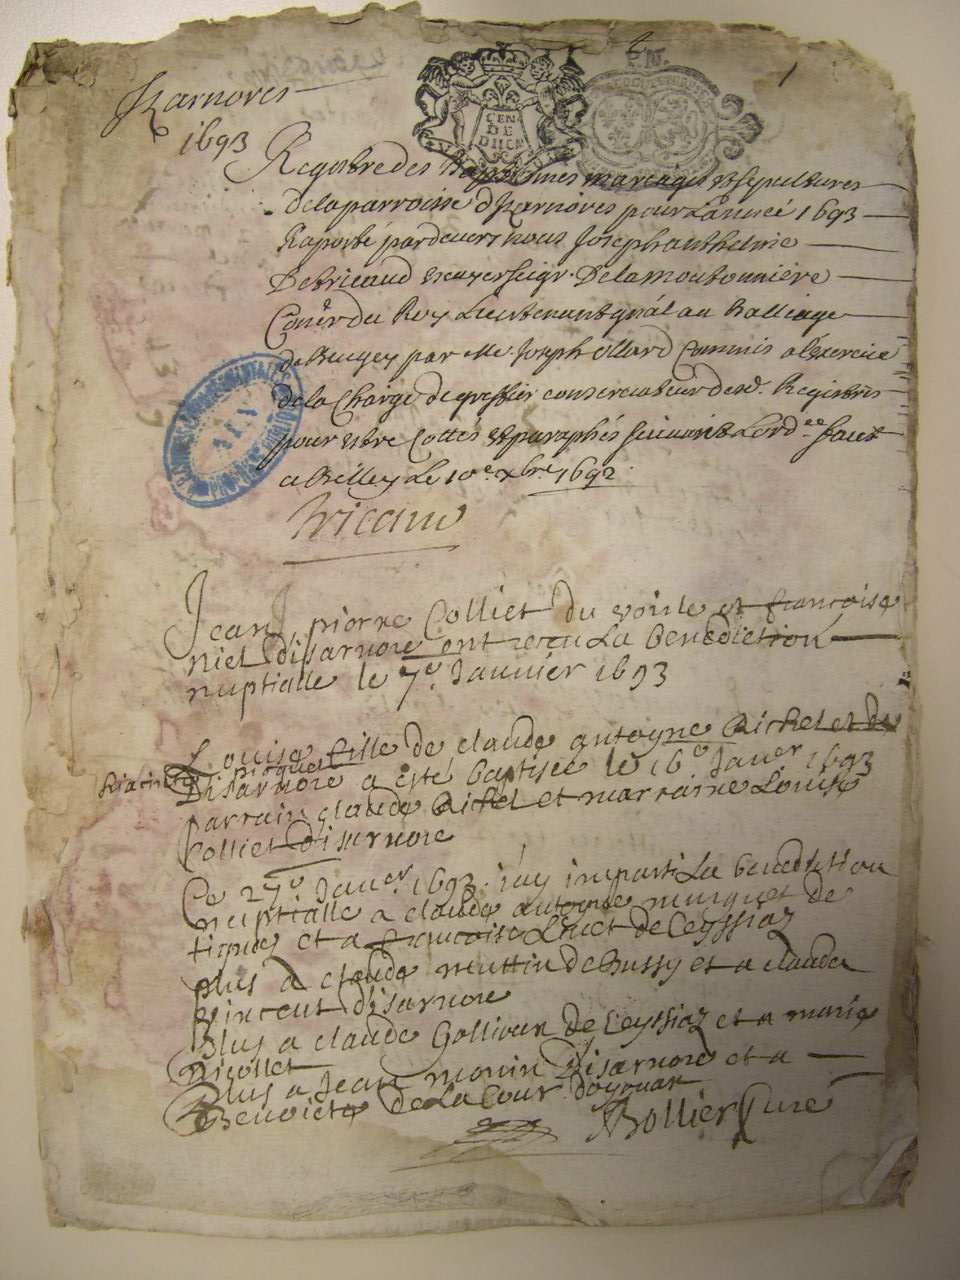 Izarnores
1693
1
GEN
DE
Registre des Baptesmes mariages et sepultures
de la parroisse d'Izarnores pour l'année 1693
Raporté pardevers nous Joseph anthelme
De bricaud escuyer seigr. De la moutonniere
Coner du Roy Lieutenant gnâl au Balliage
de Bugey par Me. Joseph ollard Commis a l'exercice
de la Charge de greffier conservateur desd. Registres
pour estre Cottés et paraphés suivant L'ord.ce fait
a Belley Le 10e xbre 1692
Bricaud
Jean pierre Colliet du voirle et francoise
niel d'isarnore ont reçu La Benediction
nuptialle le 7e. Janvier 1693
Louise fille de claude antoyne Richel et de
Disarnore a esté baptisée le 16e Janer 1693
parrain claude Richel et marraine Louise
Colliet disarnore
Ce 27e Janer. 1693. j'ay imparti La benediction
nuptialle a claude antoyne murquet de
tignes et a francoise Livet de Ceyssiaz
plus a claude muttin de Bussy et a clauda
vincent d'isarnore
plus a claude Gollion de Ceyssiaz et a marie
nicollet
Plus a Jean monin Disarnore et a
Benoiete de La Cour d'oyonax
Bollier Curé